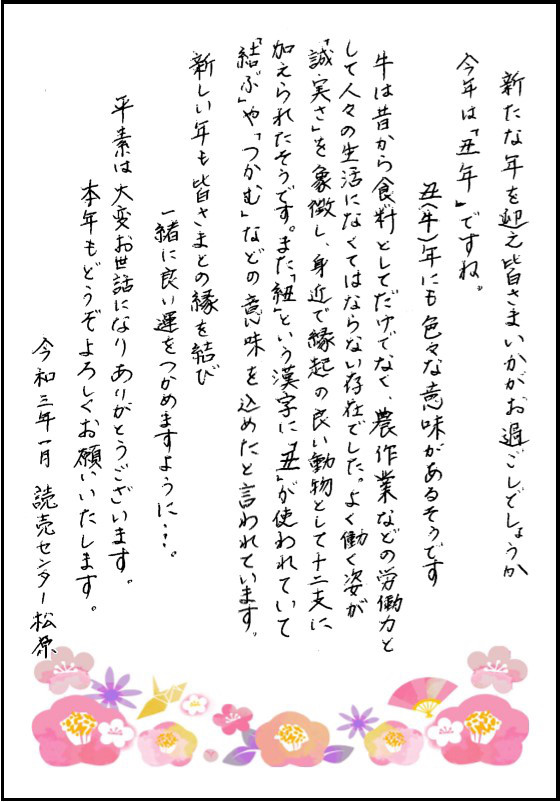 新たな年を迎え皆さまいかがお過ごしでしょうか
今年は「丑年」ですね。
丑(牛)年にも色々な意味があるそうです
牛は昔から食料としてだけでなく、農作業などの労働力と
して人々の生活になくてはならない存在でした。よく働く姿が
「誠実さ」を象徴し、身近で縁起の良い動物として十二支に
加えられたそうです。また「紐」という漢字に「丑」が使われていて
「結ぶ」や「つかむ」などの意味を込めたと言われています。
新しい年も皆さまとの縁を結び
一緒に良い運をつかめますように…。
平素は大変お世話になりありがとうございます。
本年もどうぞよろしくお願いいたします。
令和三年一月 読売センター松原